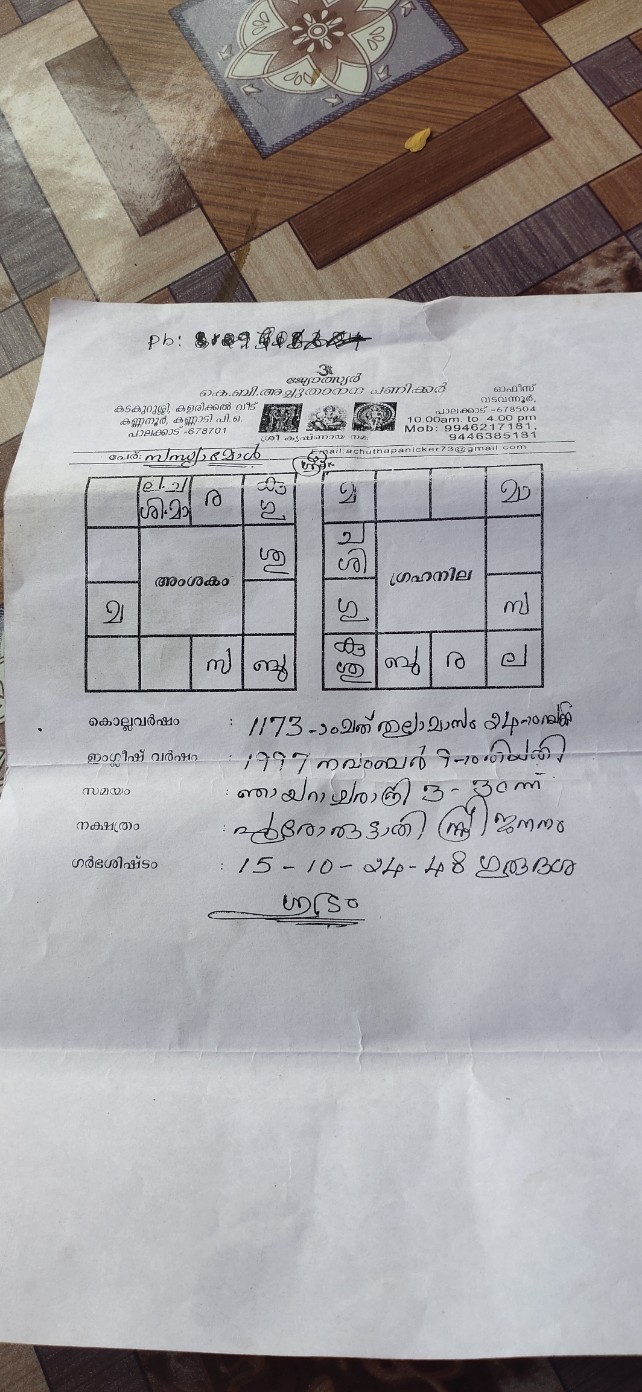 Ph:
ജ്യോത്സ്യർ
കെ.ബി.അച്യുതാനന്ദ പണിക്കർ
കടകുറുശ്ശി, കളരിക്കൽ വീട്
കണ്ണനൂർ, കണ്ണാടി പി.ഒ.
പാലക്കാട് -678701
ശ്രീ കൃഷ്ണായ നമ:
ഓഫീസ്
വടവന്നൂർ,
പാലക്കാട് -678504
10.00am to 4.00 pm
Mob: 9946217181,
9446385181
പേര്: സന്ധ്യാമോൾ
Email:achuthapanicker73@gmail.com
ല.ച ര കു
ശി.മാ ഗു
ശു
അംശകം
മ
സ ബു
മ മാ
ച
ശി
ഗ്രഹനില
ഗു സ
കു ബു ര ല
ശു
കൊല്ലവർഷം : 1173-ാംമത് തുലാമാസം 24-ാംനു
ഇംഗ്ലീഷ് വർഷം : 1997 നവംബർ 9-ാംതിയ്യതി
സമയം : ഞായറാഴ്ചരാത്രി 3-30ന്
നക്ഷത്രം : പൂരോരുട്ടാതി സ്ത്രീ ജനനം
ഗർഭശിഷ്ടം : 15-10-24-48 ഗുരുദശ
ശുഭം